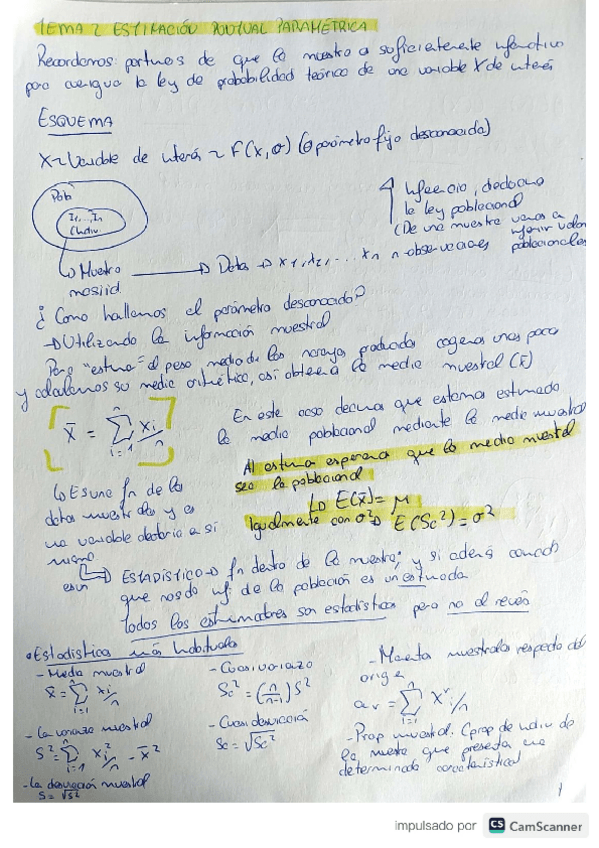 TEMA 2 ESTIMACIÓN PUNTUAL PARAMÉTRICA
Recordemos: partimos de que la muestra a suficientemente informativa
para averiguar la ley de probabilidad teórica de una variable X de interés
ESQUEMA
X~Variable de interés ~ F(x, θ) (θ parámetro fijo desconocido)
Pob
Muestra → Datos → x1, x2, ... xn n observaciones
masiid
Inferencia,
la ley poblacional
(De una muestra vamos a
inferir valores
poblacionales
¿Como hallamos el parámetro desconocido?
→ Utilizando la información muestral
Para "estimar" el peso medio de las naranjas producidas cogemos unas pocas
y calculamos su media aritmética, así obtenemos la media muestral (x̄)
x̄ = Σ i=1 n xi/n
En este caso decimos que estamos estimando
la media poblacional mediante la media muestral
Al estimar esperamos que la media muestral
sea la poblacional
↳ E(x̄) = μ
Igualmente con σ² → E(Sc²) = σ²
↳ Es una fn de los
datos muestrales y es
una variable aleatoria a si
mismo
es un
ESTADÍSTICO → fn dentro de la muestra; y si además
que nos da inf. de la población es un estimador
Todos los estimadores son estadísticos pero no al revés
• Estadísticos más habituales
- Media muestral
x̄ = Σ i=1 n xi/n
- La varianza muestral
S² = Σ i=1 n xi²/n - x̄²
- La desviación muestral
S = √S²
- Cuasivarianza
Sc² = (n/n-1) S²
- Cuasidesviación
Sc = √Sc²
- Momentos muestrales respecto del
origen
ar = Σ i=1 n xr/n
- Prop muestral. (prop de indiv de
la muestra que presenta una
determinada característica)
1
impulsado por CS CamScanner